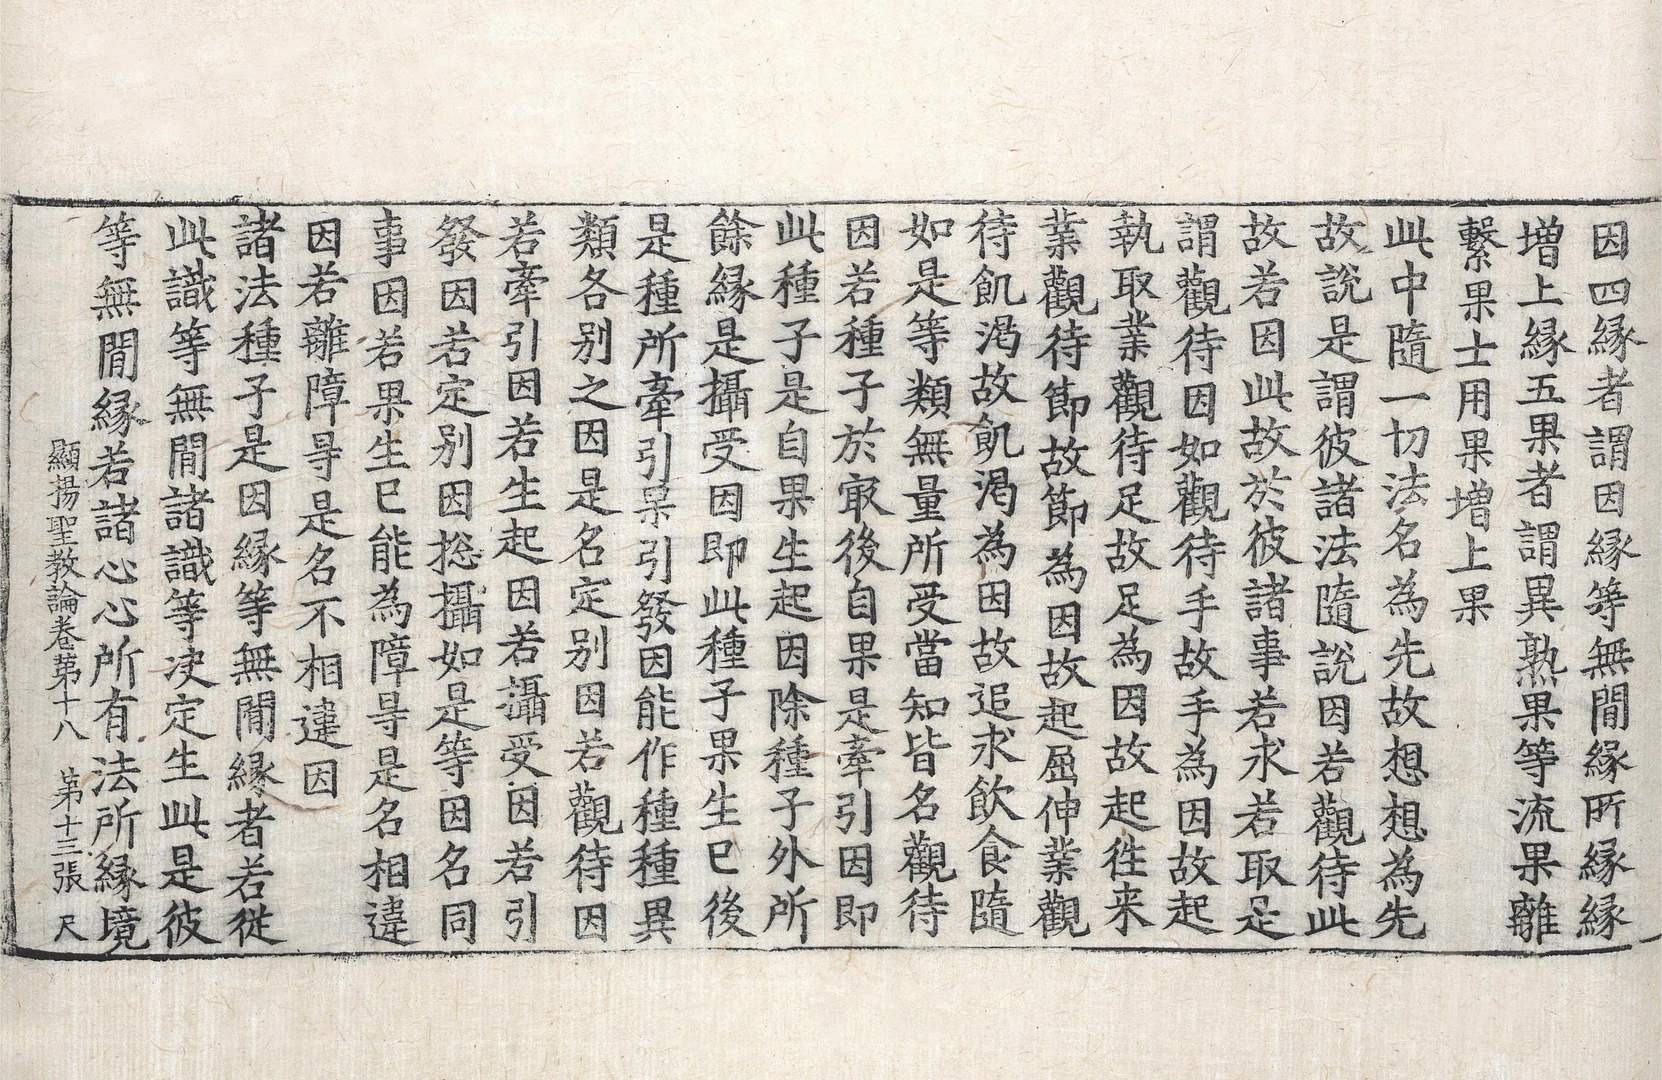 因四縁者謂因縁等無閒縁所縁縁
增上縁五果者謂異熟果等流果離
繫果士用果增上果
此中隨一切法名為先故想想為先
故說是謂彼諸法隨說因若觀待此
故若因此故於彼諸事若求若取是
謂觀待因如觀待手故手為因故起
執取業觀待足故足為因故起徃来
業觀待節故節為因故起屈伸業觀
待飢渇故飢渇為因故追求飲食隨
如是等類無量所受當知皆名觀待
因若種子於㝡後自果是牽引因即
此種子是自果生起因除種子外所
餘縁是攝受因即此種子果生巳後
是種所牽引果引發因能作種種異
類各别之因是名定别因若觀待因
若牽引因若生起因若攝受因若引
發因若定别因揔攝如是等因名同
事因若果生巳能為障㝵是名相違
因若離障㝵是名不相違因
諸法種子是因縁等無閒縁者若從
此識等無閒諸識等决定生此是彼
等無閒縁若諸心心所有法所縁境
顯揚聖教論卷第十八　第十三張　尺